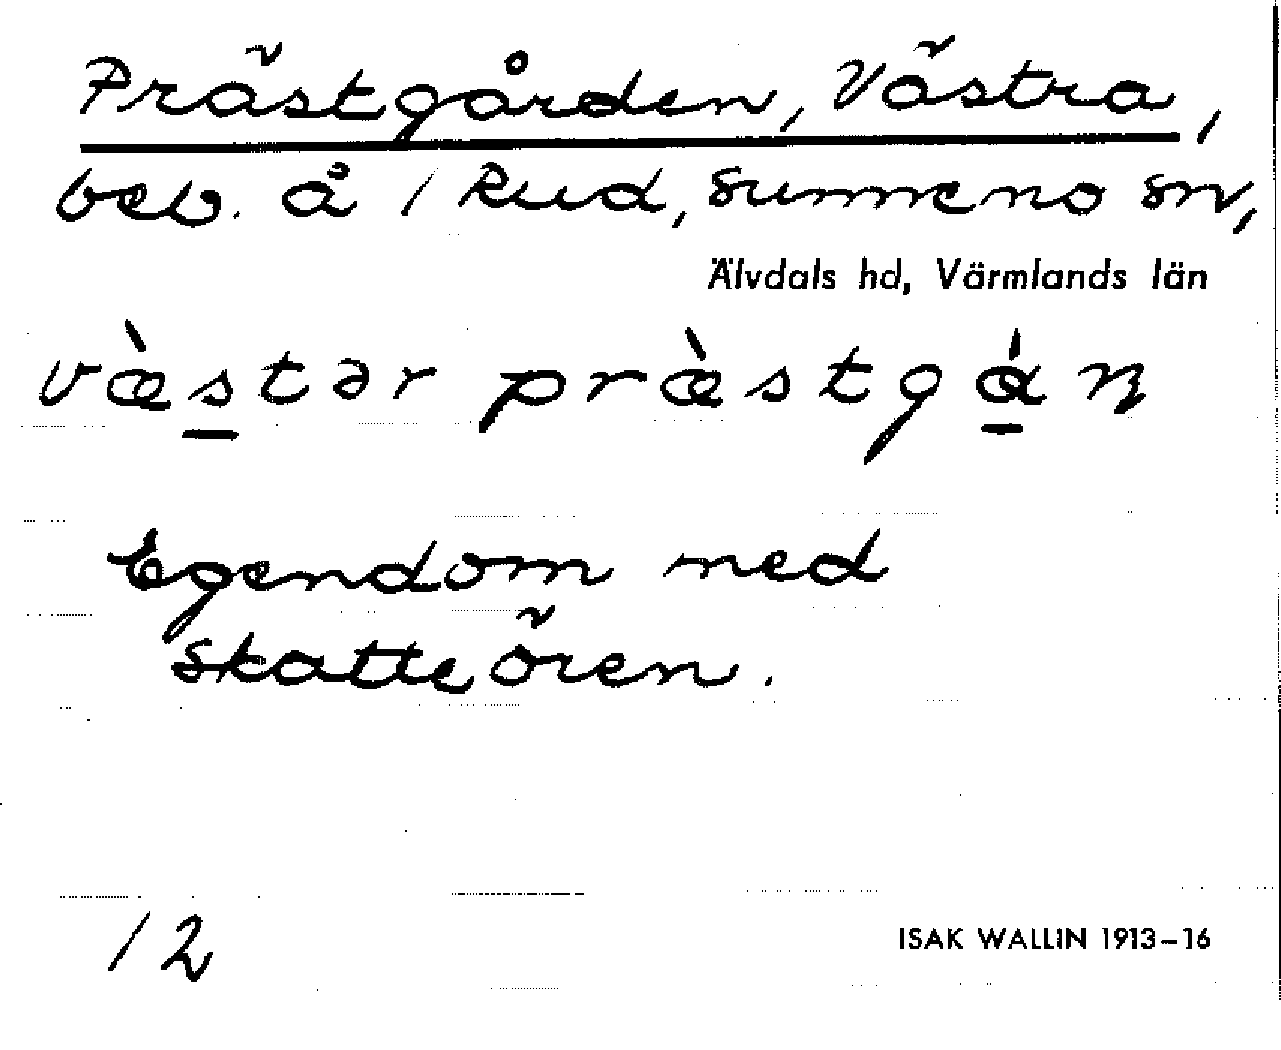 Prästgården, Västra,
beb. å 1 Rud, Sunnemo sn,
Älvdals hd, Värmlands län
væ̀stər præ̀stgɑ́ɳ
Egendom med
skatteören.
12
ISAK WALLIN 1913–16